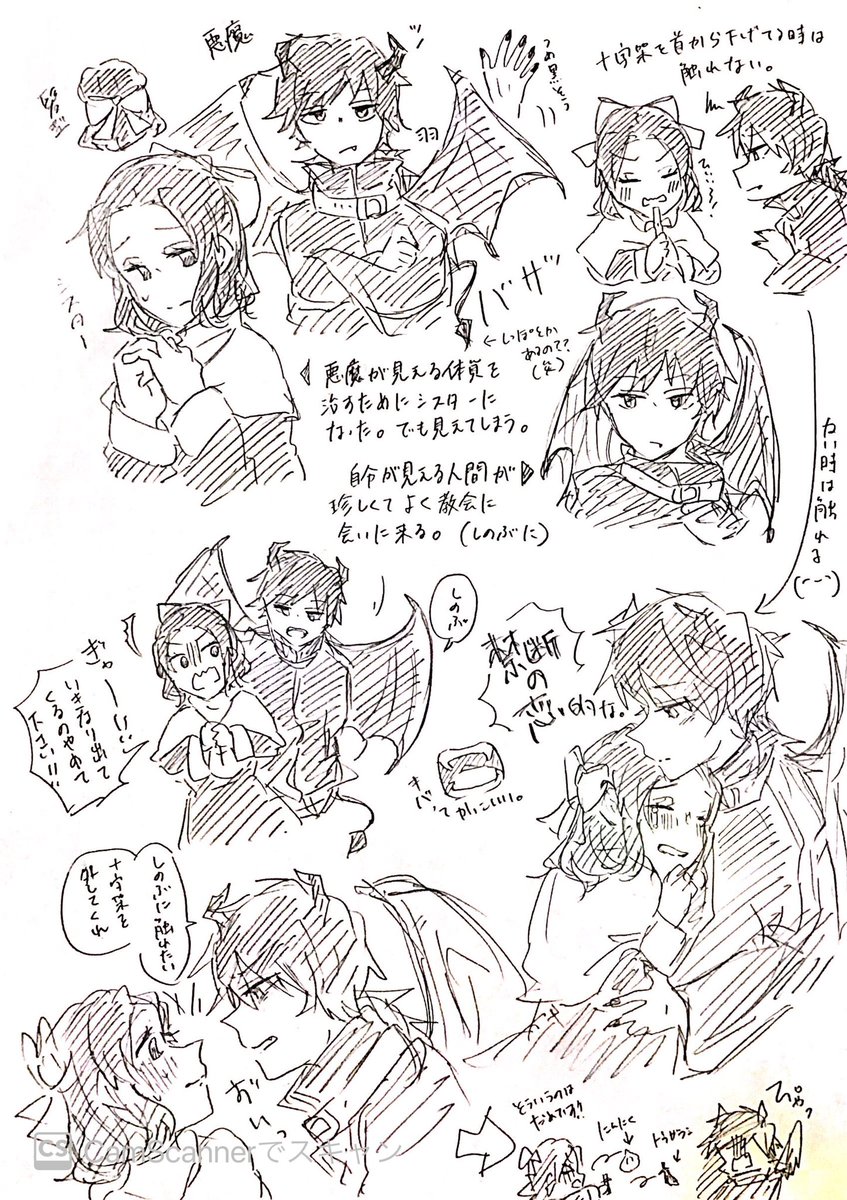 悪魔
つめ黒そう
十字架を首から下げてる時は
触れない。
髪型
羽
シスター
バサッ
←しっぽとか
あるので??
悪魔が見える体質を
治すためにシスターに
なった。でも見えてしまう。
自分が見える人間が
珍しくてよく教会に
会いに来る。(しのぶに)
ない時は触れる
しのぶ
ぎゃーー!!
いきなり出て
くるのやめて
下さい!!
禁断
の
恋的な。
キバってかっこいい。
しのぶに触れたい
十字架を
外してくれ
おいっ
そういうのは
だめです!!
にんにく
CS CamScannerでスキャン